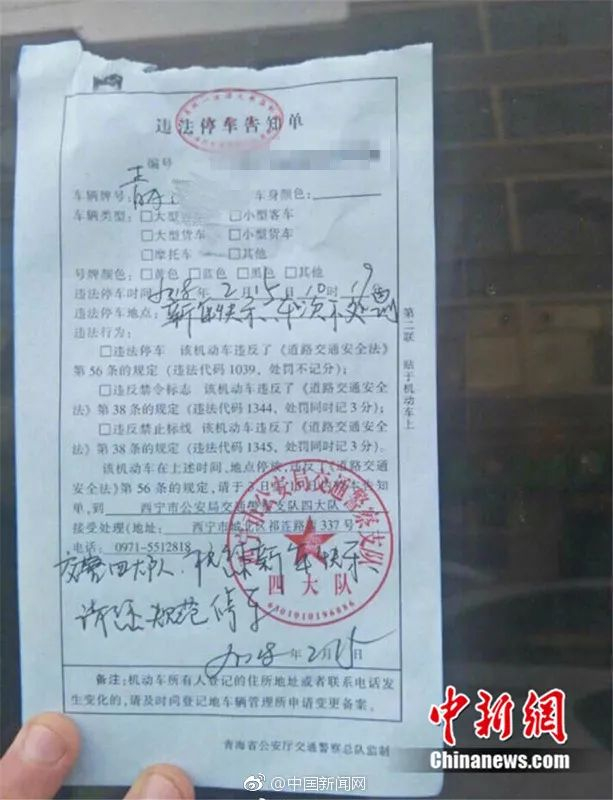 违法停车告知单
编号
车辆牌号:青 车身颜色:
车辆类型:□大型客车 □小型客车
□大型货车 □小型货车
□摩托车 □其他
号牌颜色:□黄色 □蓝色 □黑色 □其他
违法停车时间:2018年2月15日10时19
违法停车地点:新年快乐!本次不处罚
违法行为:
□违法停车 该机动车违反了《道路交通安全法》
第56条的规定(违法代码1039、处罚不记分);
□违反禁令标志 该机动车违反《道路交通安全
法》第38条的规定(违法代码1344、处罚同时记3分);
□违反禁止标线 该机动车违反了《道路交通安全
法》第38条的规定(违法代码1345、处罚同时记3分)。
该机动车在上述时间、地点停放,违反了《道路交通
安全法》第56条的规定,请于3日 15日 告知
单,到 西宁市公安局交通警察支队四大队
接受处理(地址: 西宁市城北区祁连路 337号
电话: 0971-5512818
交警四大队 祝您新年快乐
请您规范停车
2018年2月15日
备注:机动车所有人登记的住所地址或者联系电话发
生变化的,请及时向登记地车辆管理所申请变更备案。
青海省公安厅交通警察总队监制
第二联 贴于机动车上
市公安局交通警察支队
四大队
6A01010196886
中新网
Chinanews.com
@中国新闻网